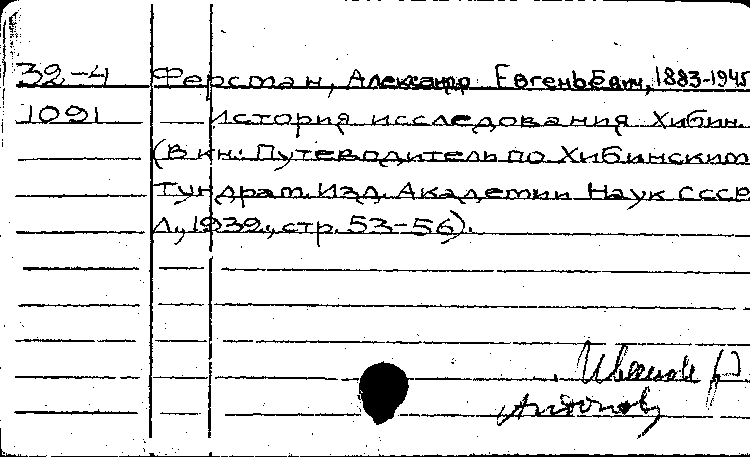 32-4 Ферсман, Александр Евгеньевич, 1883-1945
1091 История исследования Хибин.
(В кн: Путеводитель по Хибинским
Тундрам. Изд. Академии Наук СССР
Л., 1932., стр. 53-56).